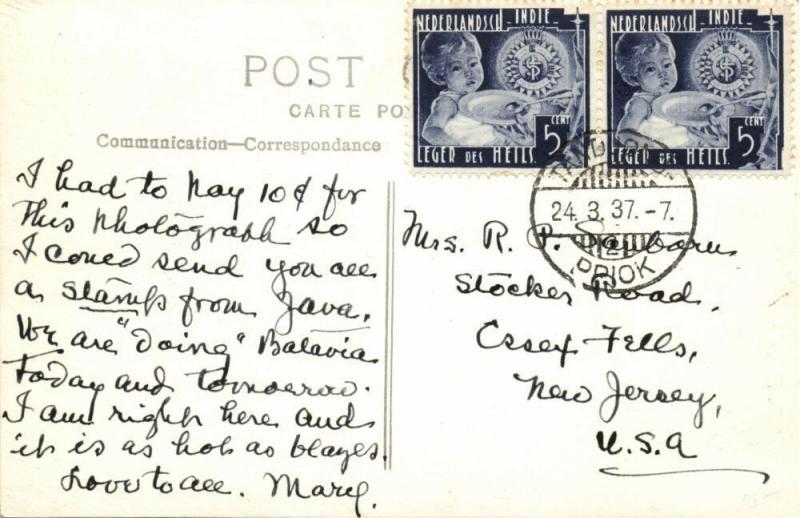 POST
CARTE PO
Communication—Correspondance
NEDERLANDSCH INDIE
5 CENT
LEGER DES HEILS.
NEDERLANDSCH INDIE
5 CENT
LEGER DES HEILS.
24. 3. 37.-7.
PRIOK
I had to pay 10¢ for
this photograph so
I could send you all
a stamp from Java.
We are "doing" Batavia
today and tomorrow.
I am right here and
it is as hot as blazes.
Love to all. Mary.
Mrs. R. P.
Stocker Road,
Essex Fells,
New Jersey,
U.S.A